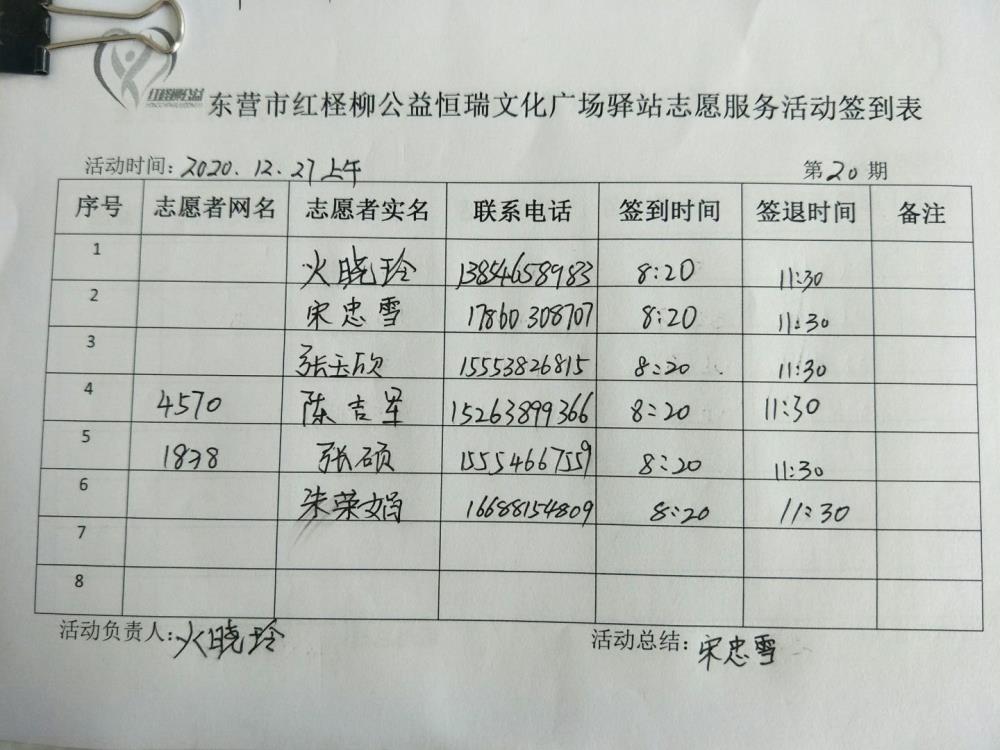 红柽柳公益
东营市红柽柳公益恒瑞文化广场驿站志愿服务活动签到表
活动时间：2020.12.27上午 第20期
序号 志愿者网名 志愿者实名 联系电话 签到时间 签退时间 备注
1 火晓玲 13854658983 8:20 11:30
2 宋忠雪 17860308707 8:20 11:30
3 张玉欣 15553826815 8:20 11:30
4 4570 陈吉军 15263899366 8:20 11:30
5 1838 张硕 15554667559 8:20 11:30
6 朱荣娟 16688154809 8:20 11:30
7
8
活动负责人：火晓玲 活动总结：宋忠雪